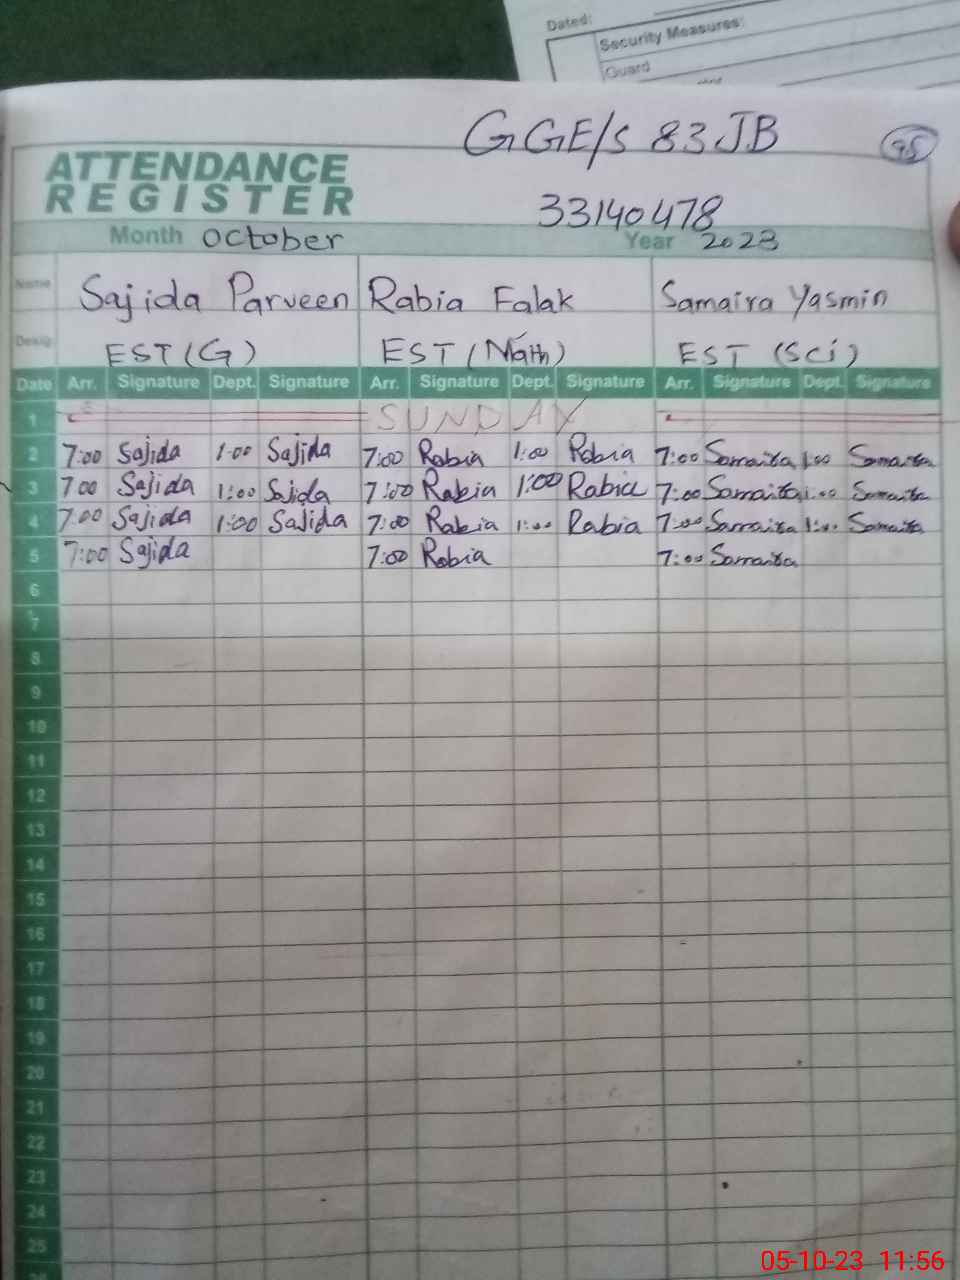 Dated:
Security Measures:
Guard
GGE/S 83JB
95
ATTENDANCE
REGISTER
33140478
Month October Year 2023
Name Sajida Parveen Rabia Falak Samaira Yasmin
Desig: EST (G) EST (Math) EST (Sci)
Date Arr. Signature Dept. Signature Arr. Signature Dept. Signature Arr. Signature Dept. Signature
1 SUNDAY
2 7:00 Sajida 1:00 Sajida 7:00 Rabia 1:00 Rabia 7:00 Samaira 1:00 Samaira
3 7:00 Sajida 1:00 Sajida 7:00 Rabia 1:00 Rabia 7:00 Samaira 1:00 Samaira
4 7:00 Sajida 1:00 Sajida 7:00 Rabia 1:00 Rabia 7:00 Samaira 1:00 Samaira
5 7:00 Sajida 7:00 Rabia 7:00 Samaira
6
7
8
9
10
11
12
13
14
15
16
17
18
19
20
21
22
23
24
25
05-10-23 11:56